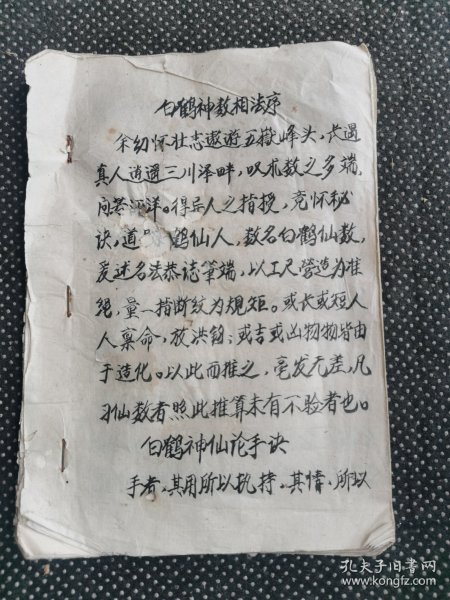 白鹤神数相法序
余幼怀壮志遨遊五嶽峰头，长遇
真人逍遥三川泽畔，叹术数之多端，
问答汪洋。得异人之指授，竟怀秘
诀，道号鹤仙人，数名白鹤仙数，
爰述名法恭诸筆端，以工尺营造为准
绳，量一指断纹为规矩。或长或短人
人稟命，放洪钧；或吉或凶物物皆由
于造化。以此而推之，毫发无差，凡
习仙数者照此推算未有不验者也。
白鹤神仙论手诀
手者，其用所以执持，其情，所以
孔夫子旧书网
www.kongfz.com